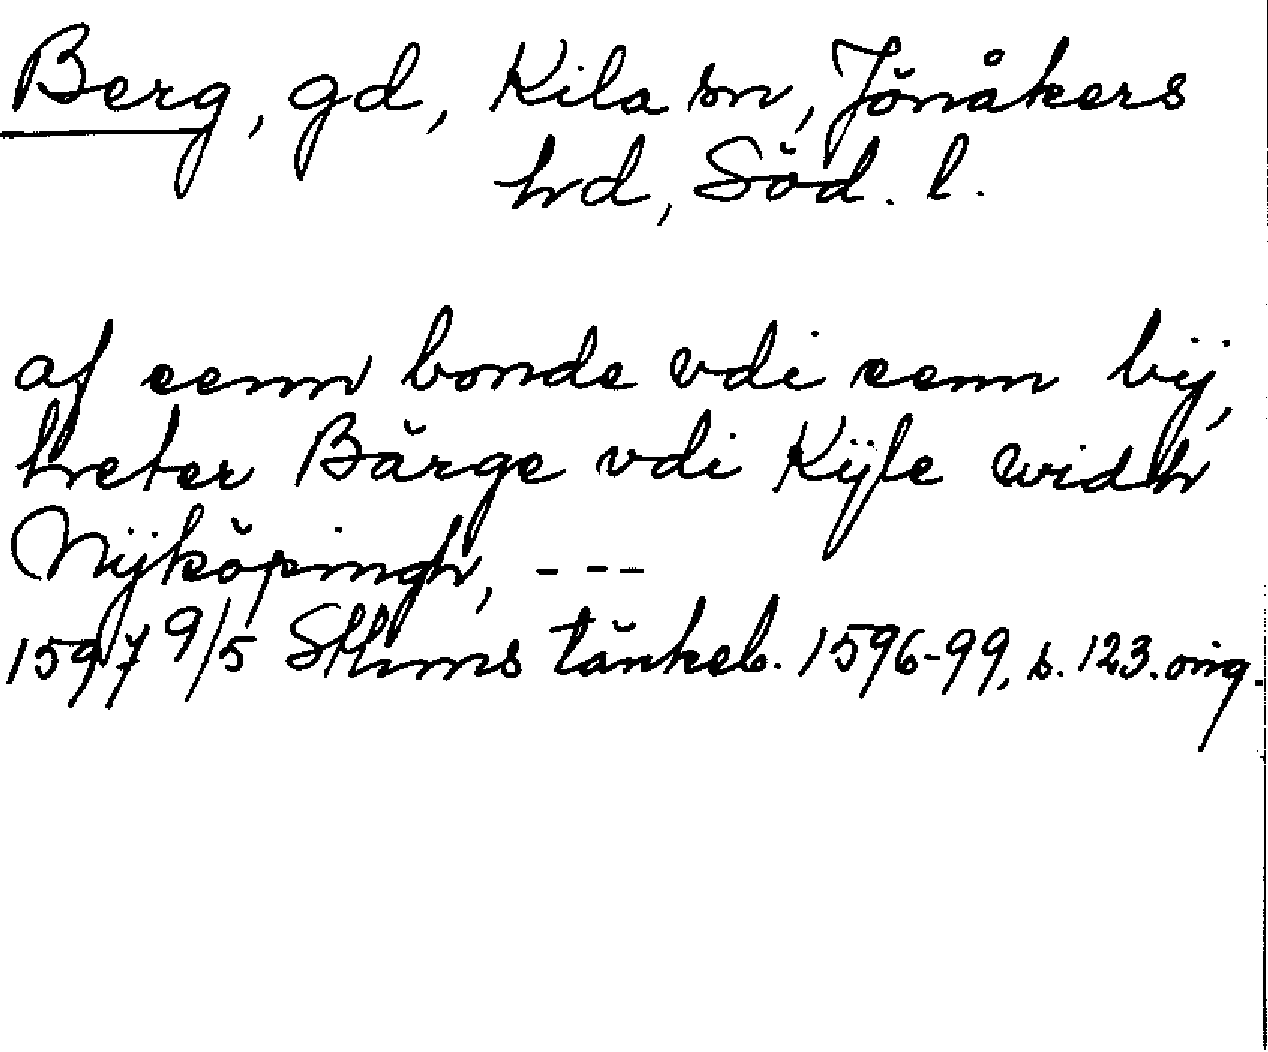 Berg, gd, Kila sn, Jönåkers
hd, Söd. l.
af eenn bonde vdi eenn bÿ,
heter Bärge vdi Kÿle widh
Nÿköpingh, ---
1597 9/5 Sthms tänkeb. 1596-99, s. 123. orig.